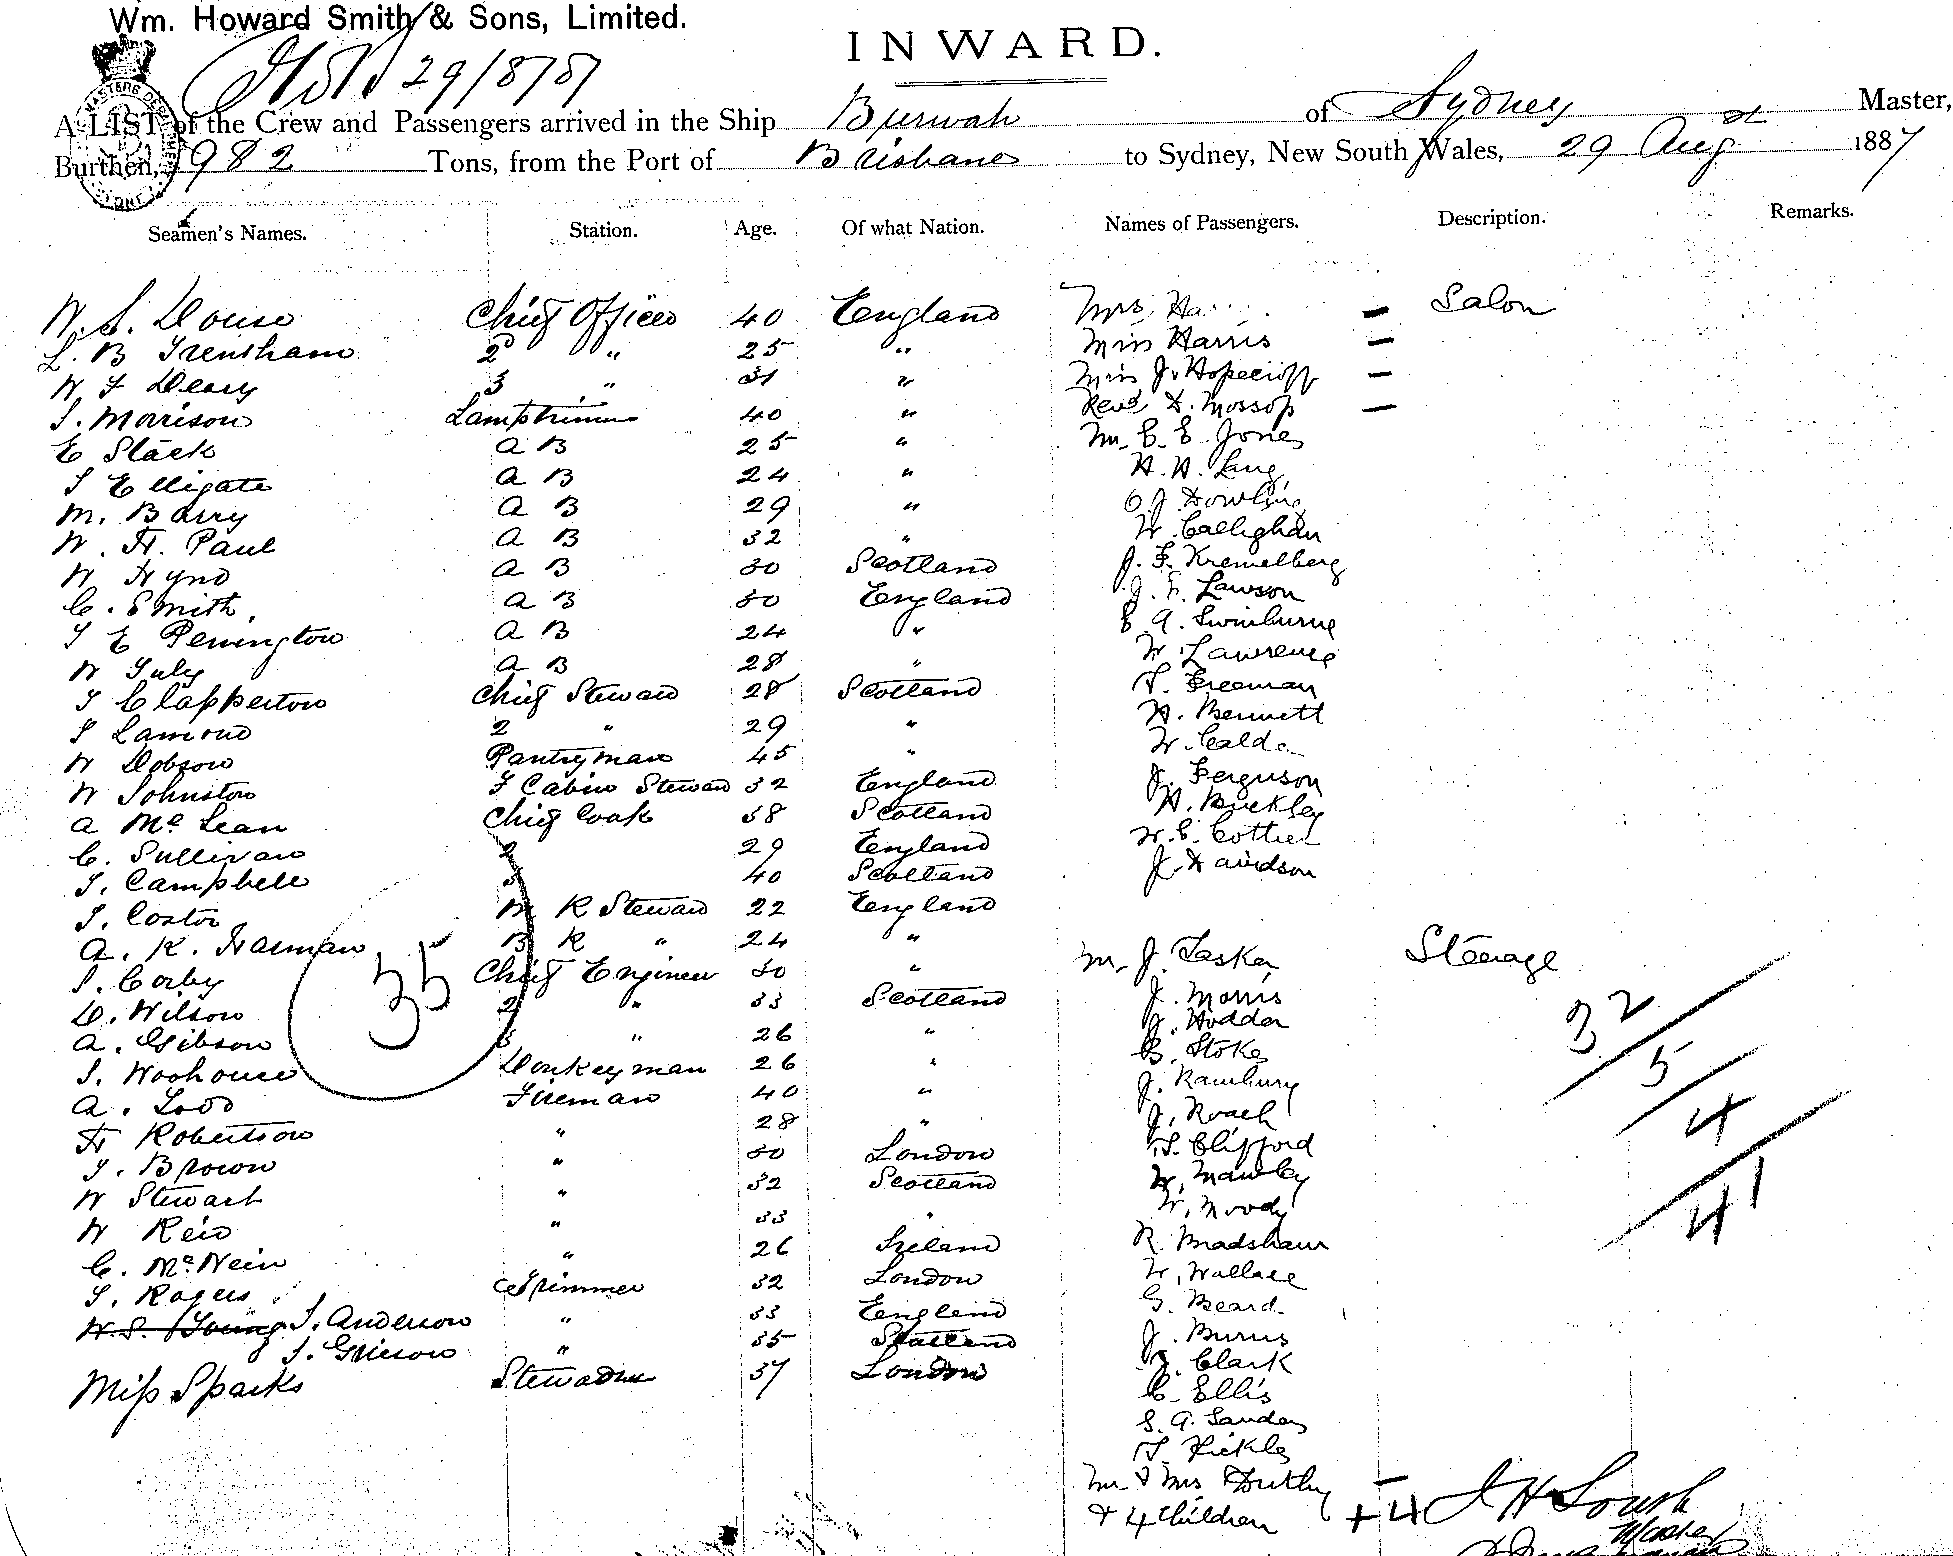 Wm. Howard Smith & Sons, Limited.
INWARD.
29/8/87
A LIST of the Crew and Passengers arrived in the Ship Burwah of Sydney Master,
Burthen, 982 Tons, from the Port of Brisbane to Sydney, New South Wales, 29 Augst 1887
Seamen's Names. Station. Age. Of what Nation. Names of Passengers. Description. Remarks.
W. S. Douse Chief Officer 40 England Mrs Ha — Salon
L. B Trensham 2d " 25 " Miss Harris —
W F Deary 3 " 31 " Miss J. Hopecroff —
J. Morrison Lamptrimmer 40 " Revd D. Mossop —
E Slack A B 25 " Mr. C. E. Jones
J Elligate A B 24 " H. H. Lang
M. Barry A B 29 " O J Dowling
W. H. Paul A B 32 " W. Callighan
W Hynd A B 30 Scotland J. F. Kremelberg
C. Smith. A B 30 England J. F. Lawson
J E Penington A B 24 " E A. Swinburne
W July A B 28 " W. Lawrence
J Clapperton Chief Steward 28 Scotland T. Freeman
J Lamond 2 " 29 " H. Bennett
W Dobson Pantryman 45 " W. Calder
W Johnston F Cabin Steward 32 England J. Ferguson
A McLean Chief Cook 38 Scotland H. Buckley
C. Sullivan 2 29 England W. C. Cottier
J. Campbell 3 40 Scotland J. Davidson
J. Costor M R Steward 22 England
A. K. Harman B R " 24 " Mr. J. Tasker Steerage
J. Corby Chief Engineer 30 " J. Morris
D. Wilson 2 " 33 Scotland J. Hodder
A. Gibson 3 " 26 " G. Stokes
J. Woohouse Donkeyman 26 " J. Rambury
A. Todd Fireman 40 " J. Roach
H Robertson " 28 " T. Clifford
J. Brown " 30 London W. Mawley
W Stewart " 32 Scotland W. Moody
W Reid " 33 " R. Bradshaw
C. McNein " 26 Ireland W. Wallace
J. Rogers Trimmer 32 London G. Beard
W. S. Young J. Anderson " 33 England J. Burns
J. Grierson " 35 Scotland J. Clark
Miss Sparks Stewardess 37 London C. Ellis
S. A. Sanders
T. Pickles
Mr & Mrs Duthy —
& 4 Children +4
35
32
5
4
41
J H South
Master